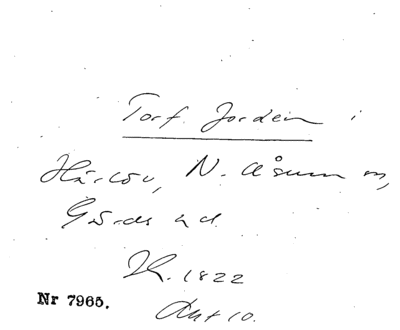 Torf. Jorden i
Härlöv, N. Åsum m,
Gärds hd.
1822
Nr 7965. Akt 10.